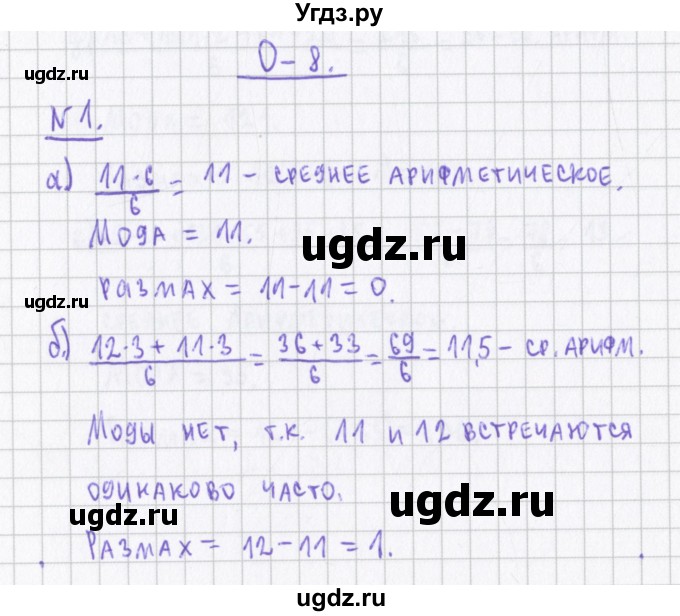 Угдз.ру
ugdz.ru
О-8.
№1.
а) 11·6/6 = 11 - СРЕДНЕЕ АРИФМЕТИЧЕСКОЕ.
ugdz.ru
МОДА = 11.
ugdz.ru
ugdz.ru
РАЗМАХ = 11-11=0.
б) 12·3+11·3/6 = 36+33/6 = 69/6 = 11,5 - СР. АРИФМ.
МОДЫ НЕТ, Т.К. 11 И 12 ВСТРЕЧАЮТСЯ
ОДИНАКОВО ЧАСТО.
ugdz.ru
ugdz.ru
РАЗМАХ = 12-11=1.
ugdz.ru